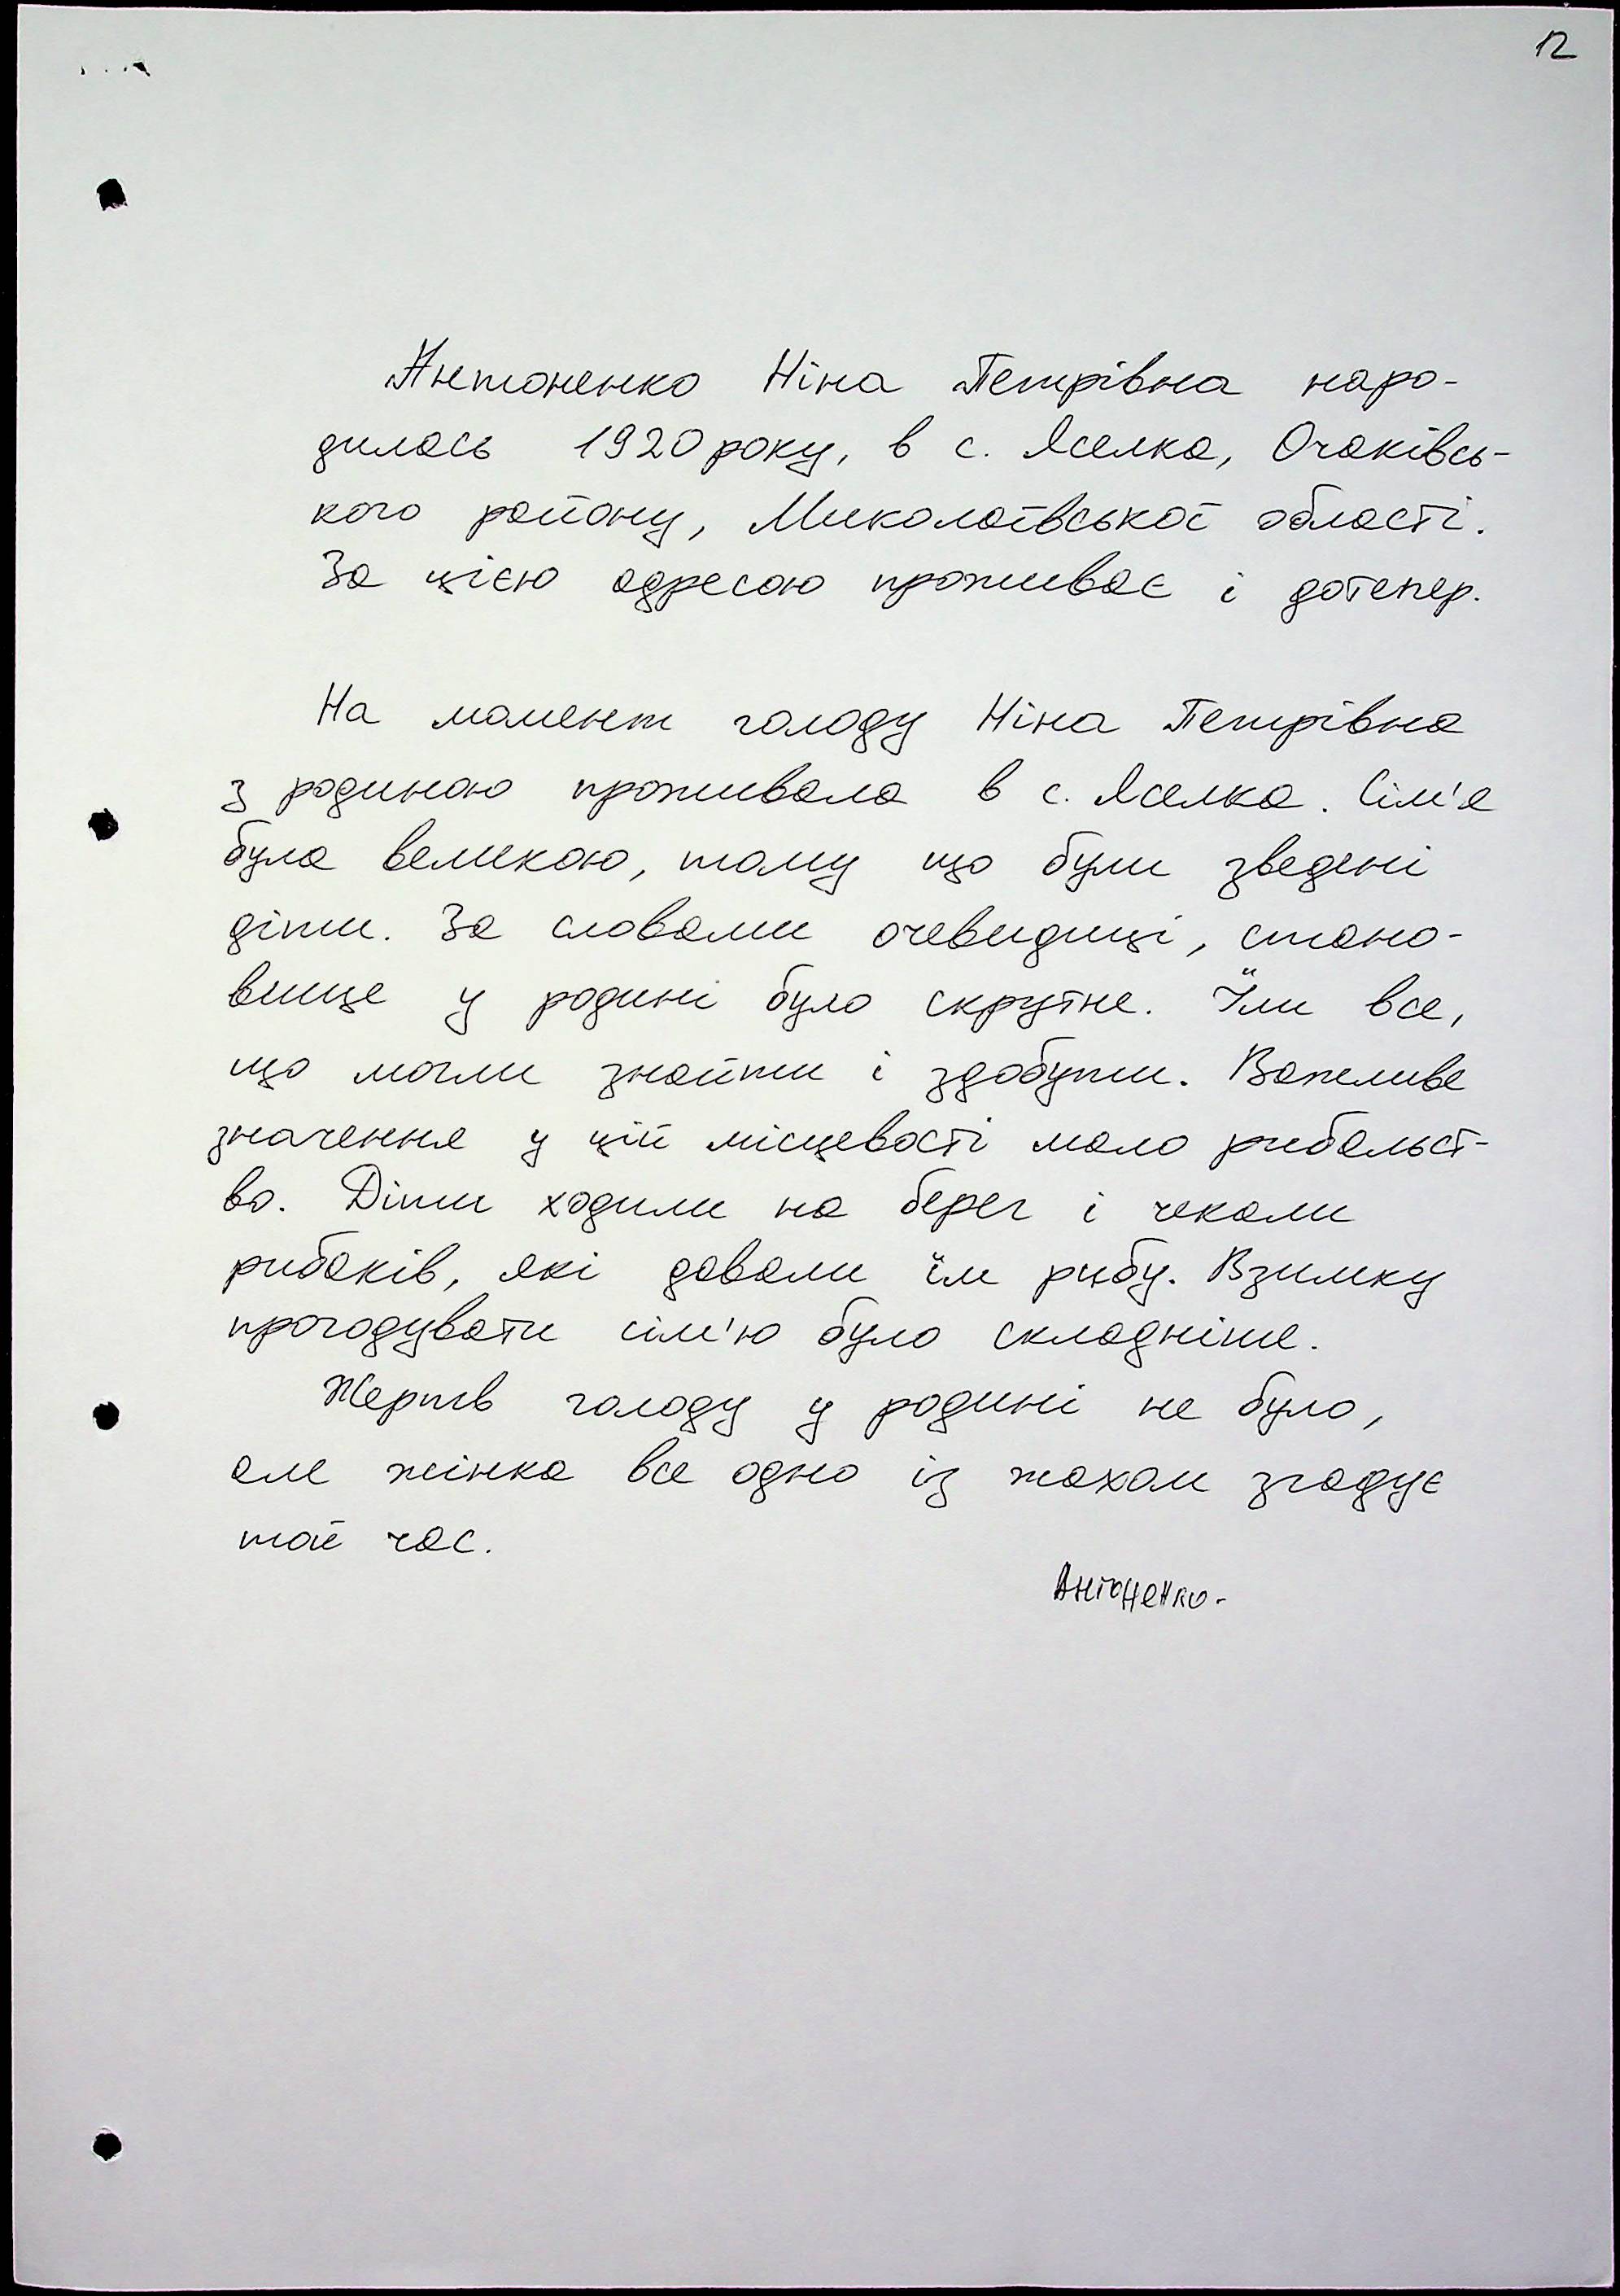 12
Антоненко Ніна Петрівна наро-
дилась 1920 року, в с. Яселка, Очаківсь-
кого району, Миколаївської області.
За цією адресою проживає і дотепер.
На момент голоду Ніна Петрівна
з родиною проживала в с. Яселка. Сім'я
була великою, тому що були зведені
діти. За словами очевидиці, стано-
вище у родині було скрутне. Їли все,
що могли знайти і здобути. Важливе
значення у цій місцевості мало рибальст-
во. Діти ходили на берег і чекали
рибаків, які давали їм рибу. Взимку
прогодувати сім'ю було складніше.
Жертв голоду у родині не було,
але жінка все одно із жахом згадує
той час.
Антоненко-